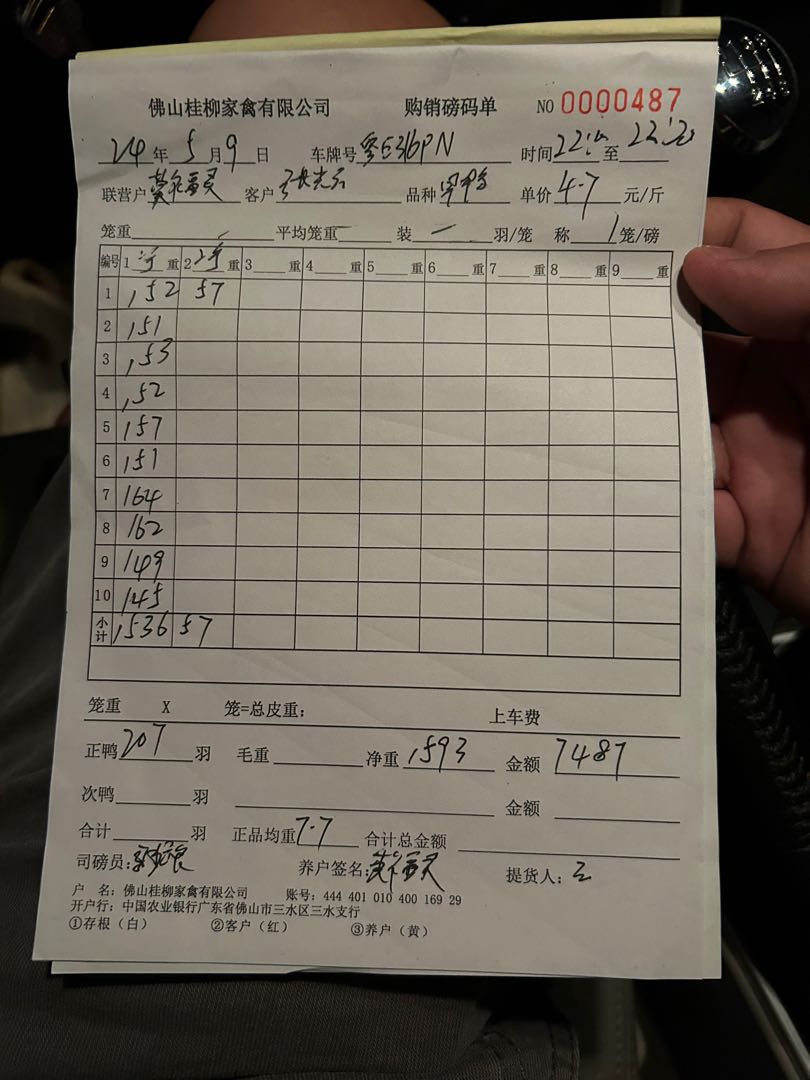 佛山桂柳家禽有限公司 购销磅码单 NO 0000487
24年5月9日 车牌号 粤E316PN 时间 22: 至 22:20
联营户 客户 张光 品种 单价 4.7 元/斤
笼重 平均笼重 装 一 羽/笼 称 1 笼/磅
编号 1 重 2 重 3 重 4 重 5 重 6 重 7 重 8 重 9 重
1 152 57
2 151
3 153
4 152
5 157
6 151
7 164
8 162
9 149
10 145
小计 1536 57
笼重 X 笼=总皮重: 上车费
正鸭 207 羽 毛重 净重 1593 金额 7487
次鸭 羽 金额
合计 羽 正品均重 7.7 合计总金额
司磅员: 养户签名: 提货人:
户 名: 佛山桂柳家禽有限公司 账号: 444 401 010 400 169 29
开户行: 中国农业银行广东省佛山市三水区三水支行
①存根(白) ②客户(红) ③养户(黄)